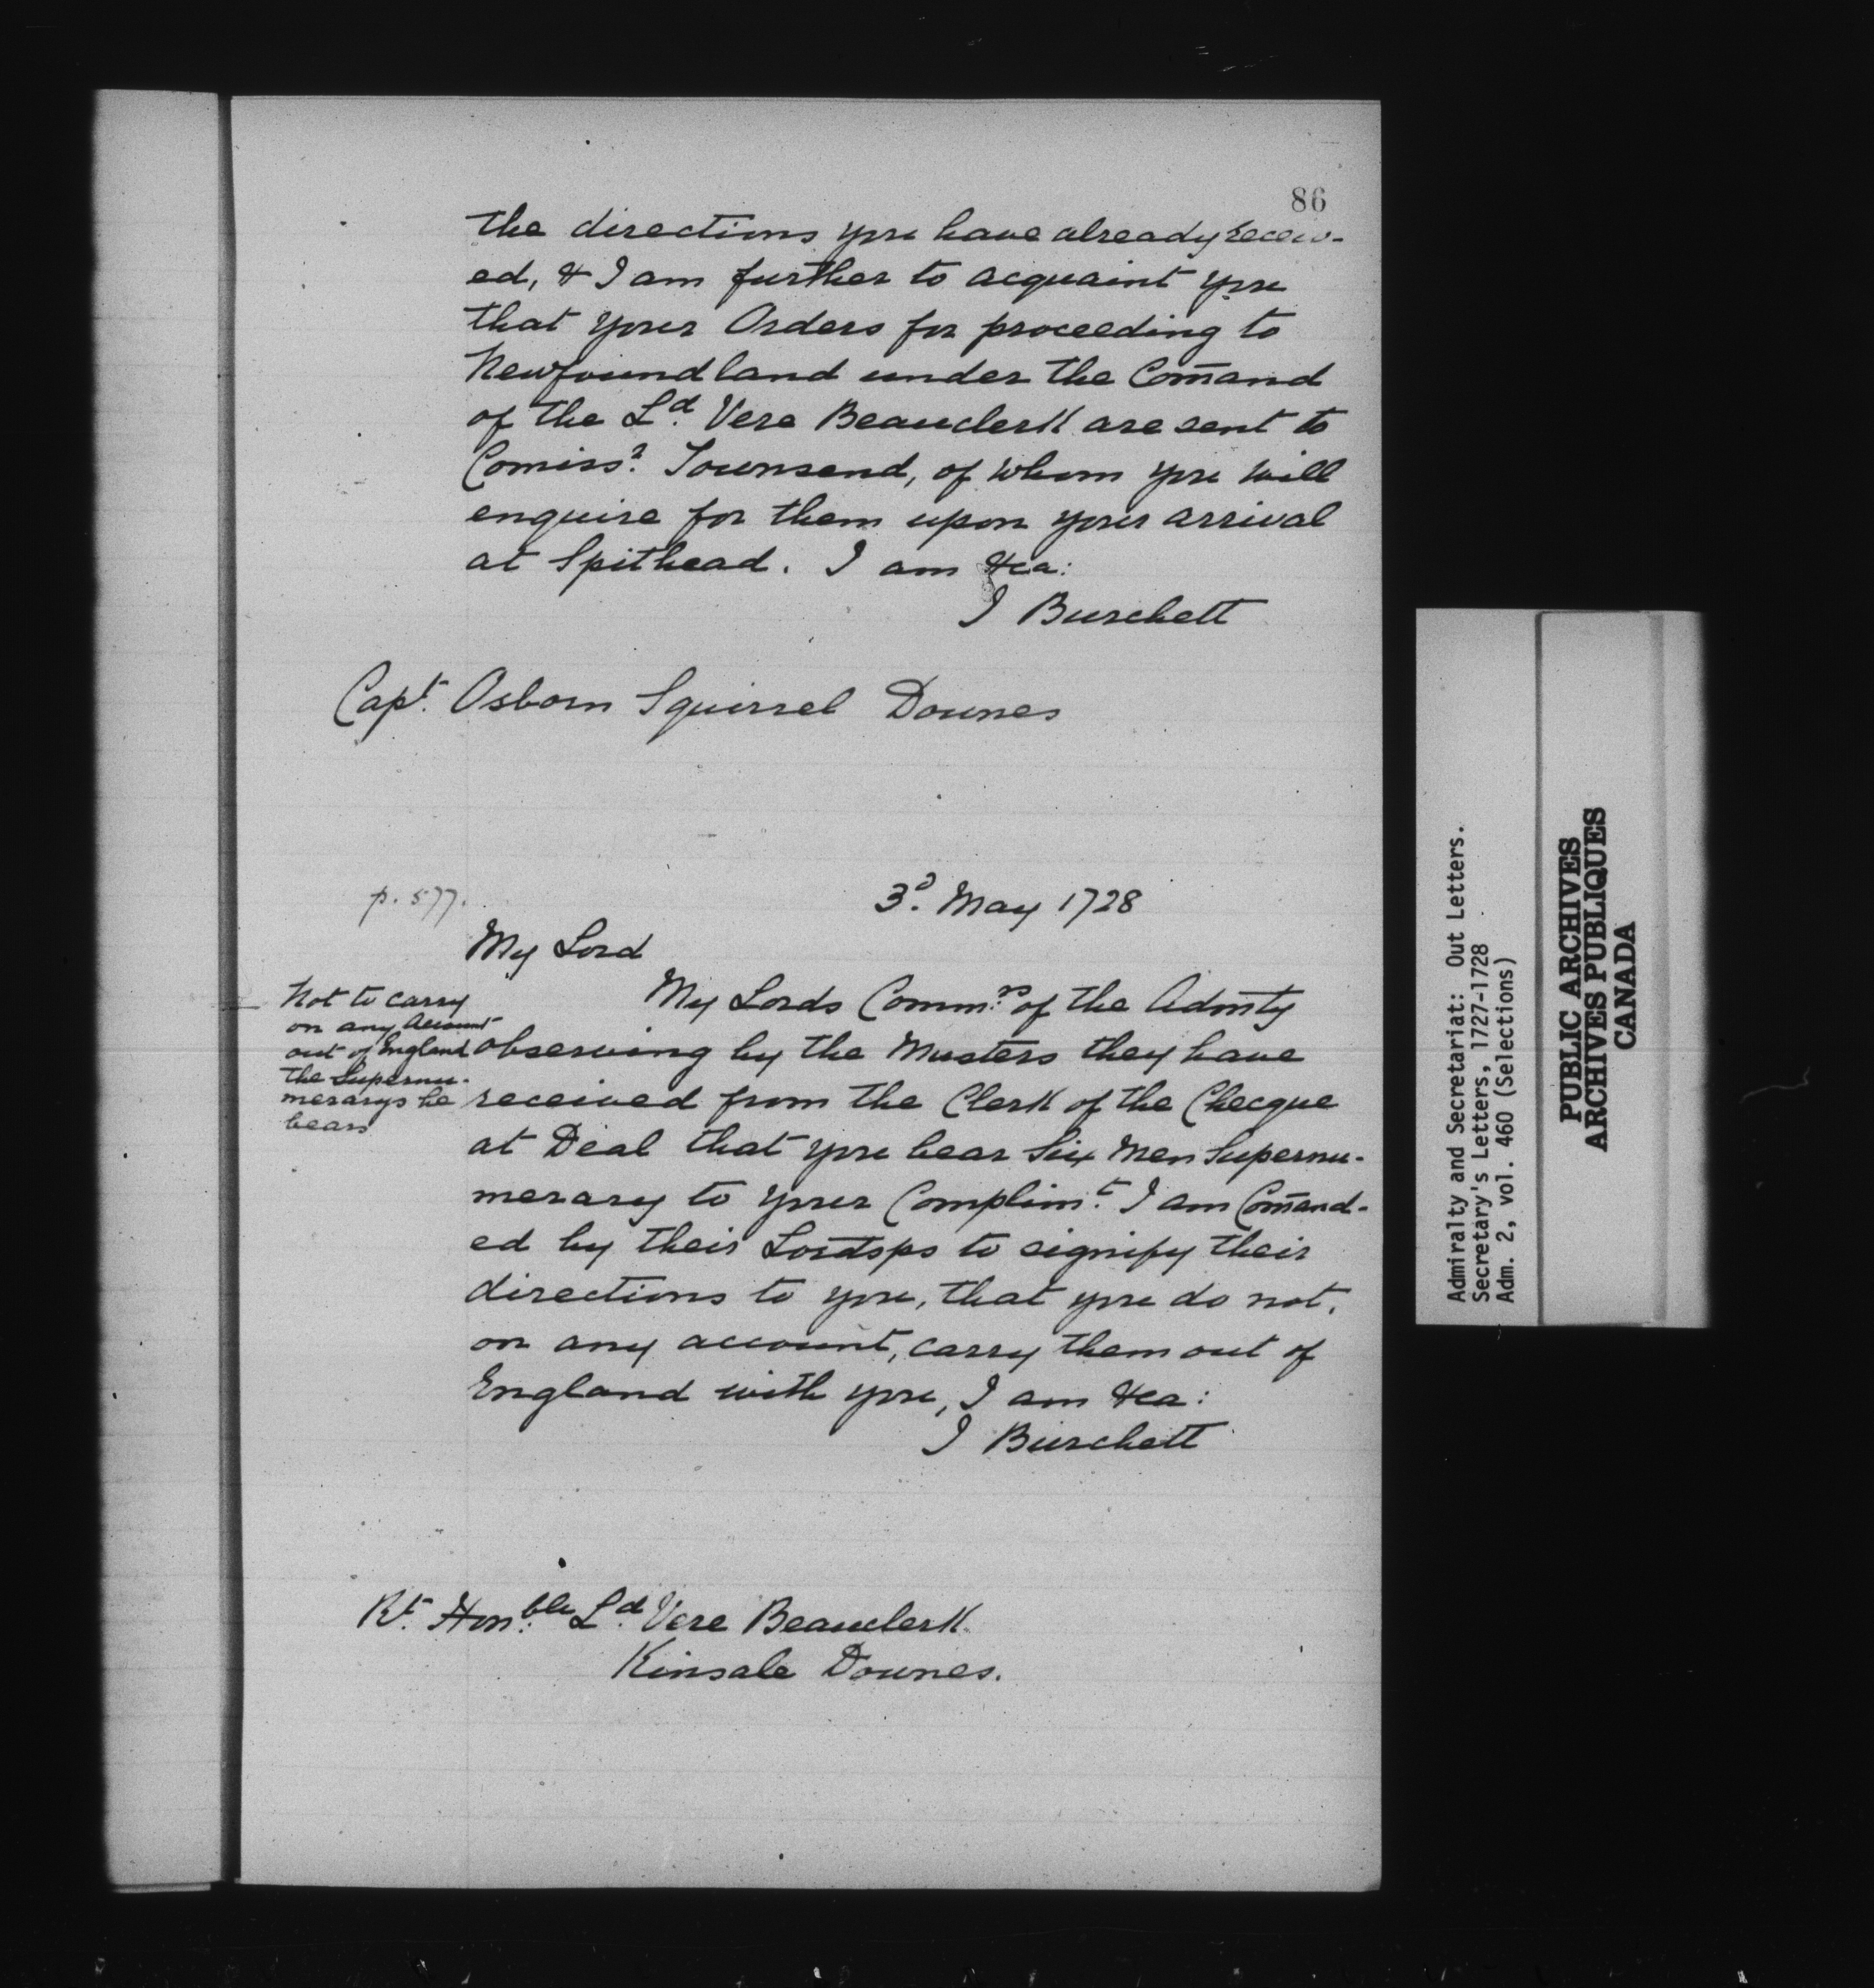 86
the directions you have already receiv-
ed, & I am further to acquaint you
that your Orders for proceeding to
Newfoundland under the Com̄and
of the Lᵈ. Vere Beauclerk are sent to
Comissʳ. Townsend, of whom you will
enquire for them upon your arrival
at Spithead. I am &ca:
J Burchett
Capᵗ. Osborn Squirrel Downes
p. 577.
3ᵈ. May 1728
My Lord
Not to carry
on any Account
out of England
the Supernu-
merarys he
bears
My Lords Commʳˢ. of the Adm̄ty
observing by the Musters they have
received from the Clerk of the Checque
at Deal that you bear Six Men Supernu-
merary to your Complimᵗ. I am Com̄and-
ed by their Lordsps to signify their
directions to you, that you do not,
on any account, carry them out of
England with you, I am &ca:
J Burchett
Rᵗ. Honᵇˡᵉ. Lᵈ. Vere Beauclerk
Kinsale Downes.
Admiralty and Secretariat: Out Letters.
Secretary's Letters, 1727-1728
Adm. 2, vol. 460 (Selections)
PUBLIC ARCHIVES
ARCHIVES PUBLIQUES
CANADA